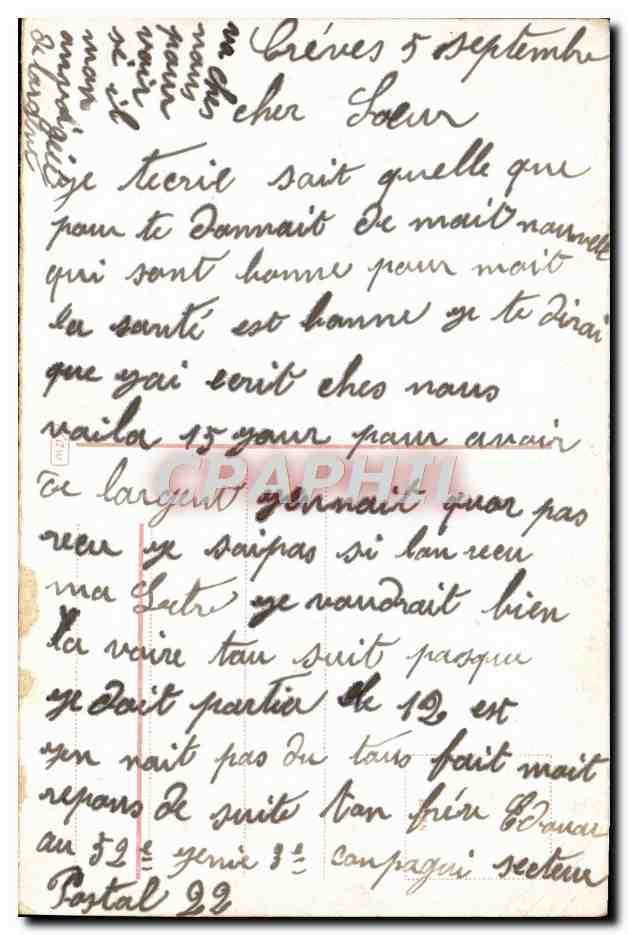 Créves 5 septembre
cher Soeur
je tecrie sait quelle que
pour te donnait de mait nouvelle
qui sont bonne pour mait
la santé est bonne je te dirai
que jai ecrit ches nous
voila 15 jour pour avoir
de largent jennait quor pas
recu je saipas si lon recu
ma Letre je voudrait bien
la voire tau suit pasque
je doit partir le 12 est
jen nait pas du tous fait mait
repons de suite ton frére Edouar
au 52e genie 3e conpagni secteur
Postal 22
va ches
nous
pour
voir
si il
mon
anvoi
de largent
CPAPHIL